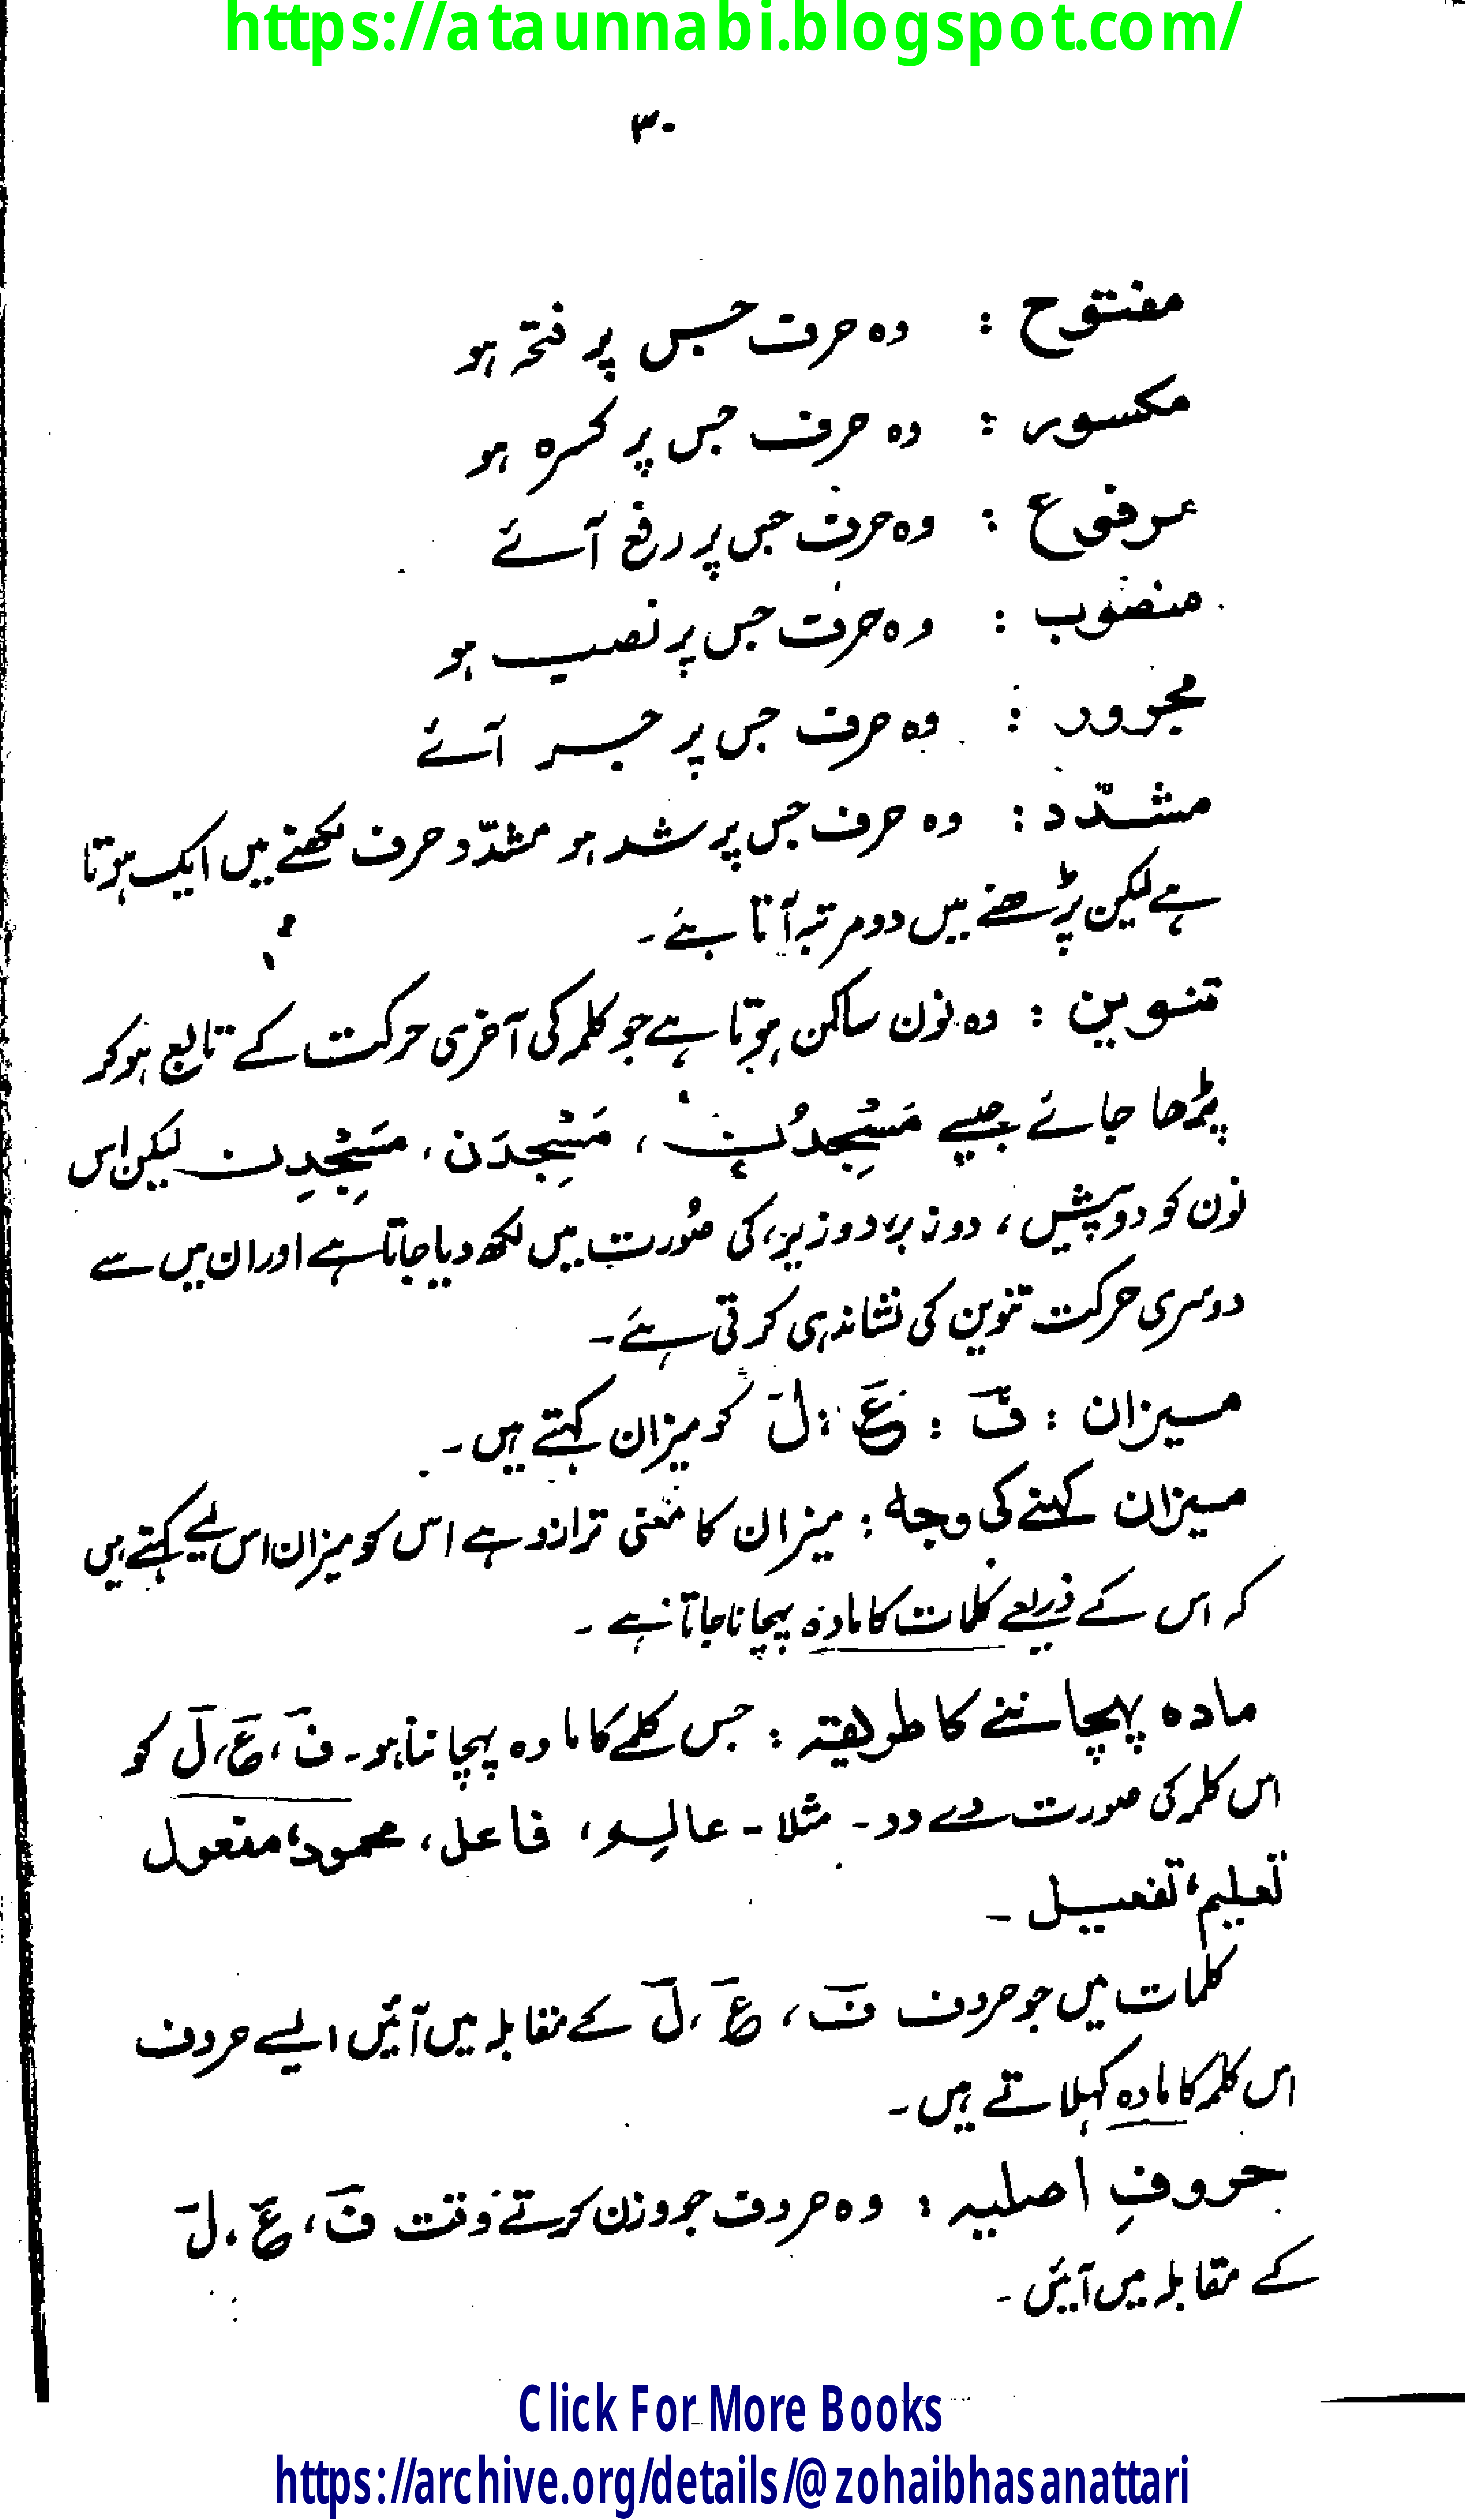 https://ataunnabi.blogspot.com/
۳۰
مفتوح : وہ حرف جس پر فتحہ ہو
مکسور : وہ حرف جس پر کسرہ ہو
مرفوع : وہ حرف جس پر رفع آئے
منصوب : وہ حرف جس پر نصب ہو
مجرور : وہ حرف جس پر جر آئے
مشدّد : وہ حرف جس پر شد ہو مشدّد حرف لکھنے میں ایک ہوتا
ہے لیکن پڑھنے میں دو مرتبہ آتا ہے۔
تنوین : وہ نون ساکن ہوتا ہے جو کلمہ کی آخری حرکت کے تابع ہو کر
پڑھا جائے جیسے مَسْجِدُن ، مَسْجِدَن ، مَسْجِدِن لیکن اس
نون کو دو پیش ، دو زبر، دو زیر، کی صُورت میں لکھ دیا جاتا ہے اور ان میں سے
دوسری حرکت تنوین کی نشاندہی کرتی ہے۔
میزان : فَ : عَ : لَ کو میزان کہتے ہیں۔
میزان کہنے کی وجہ : میزان کا معنی ترازو ہے اس کو میزان اس لیے کہتے ہیں
کہ اس کے ذریعے کلمات کا مادہ پہچانا جاتا ہے ۔
مادہ پہچاننے کا طریقہ : جس کلمے کا مادہ پہچاننا ہو۔ فَ ، عَ، لَ کو
اس کلمہ کی صورت دے دو۔ مثلاً - عالِم ، فاعل ، محمود، مفعول
تعلیم، تفعیل ۔
کلمات میں جو حروف فَ ، عَ ، لَ کے مقابلہ میں آئیں ایسے حروف
اس کلمہ کا مادہ کہلاتے ہیں۔
حروفِ اصلیہ : وہ حروف جو وزن کرتے وقت فَ ، عَ ، لَ
کے مقابلہ میں آئیں ۔
Click For More Books
https://archive.org/details/@zohaibhasanattari